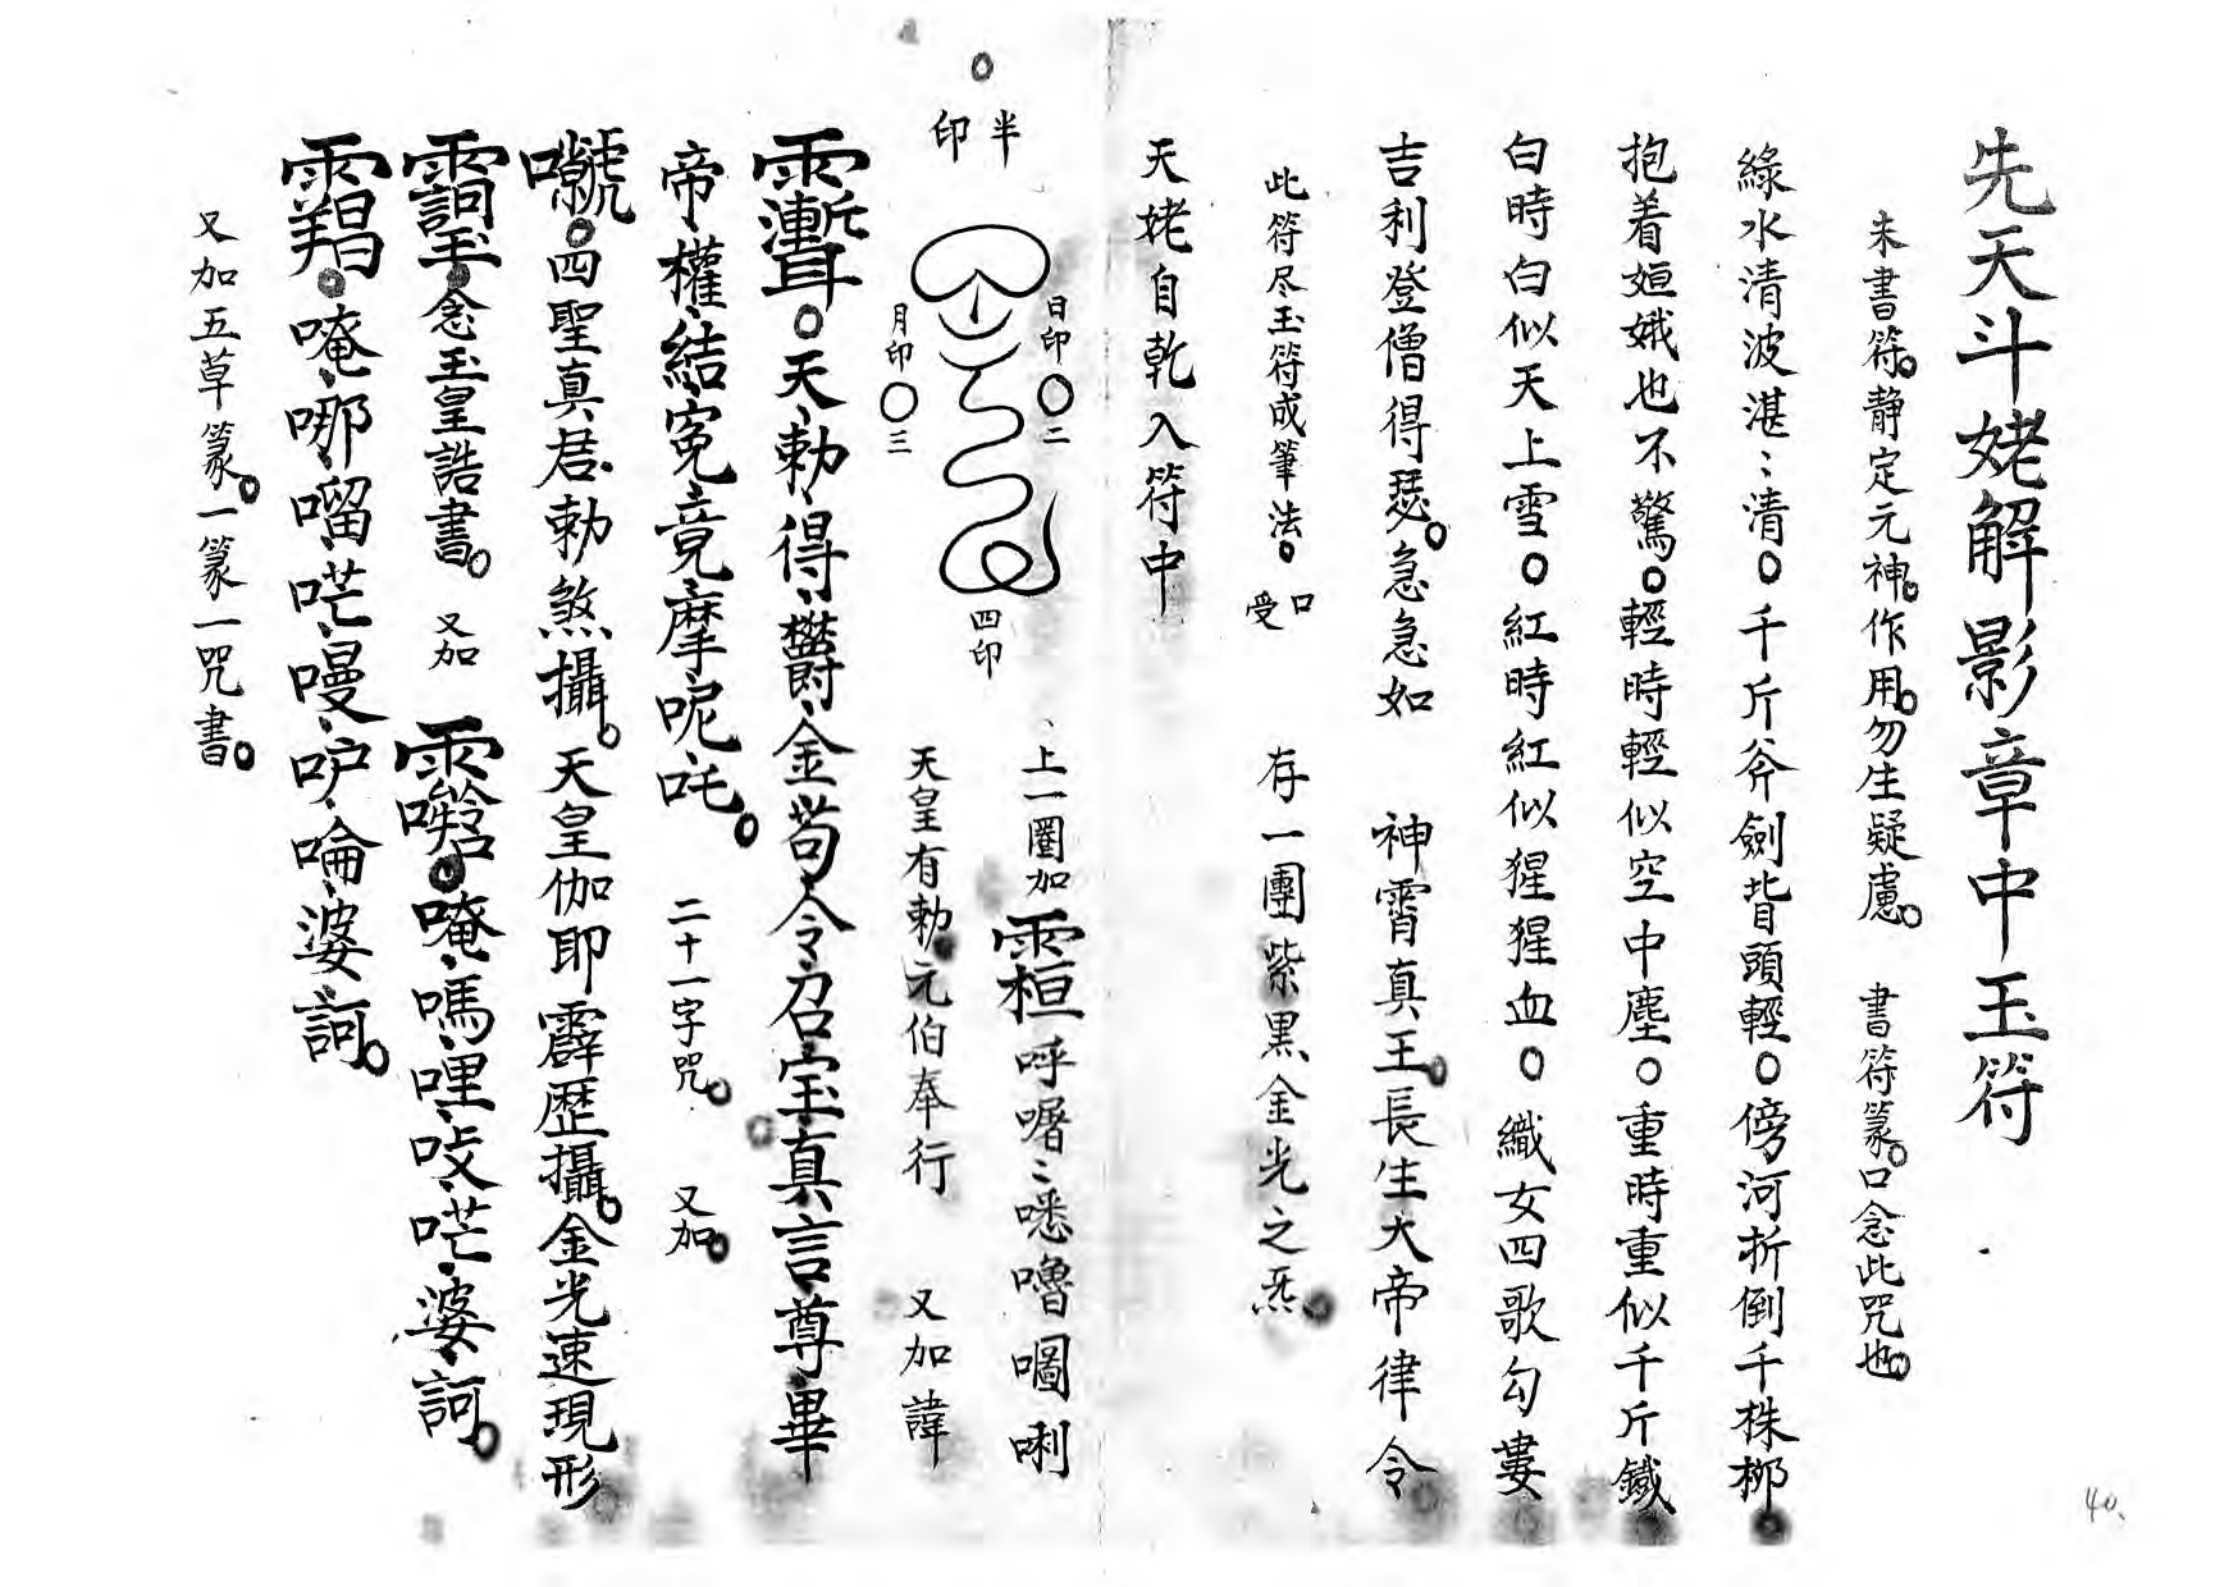 先天斗姥解影章中玉符
未書符。靜定元神。作用。勿生疑慮。 書符篆。口念此咒也。
綠水清波湛〻清。千斤斧劍皆頭輕。傍河折倒千株柳。
抱着姮娥也不驚。輕時輕似空中塵。重時重似千斤鐵
白時白似天上雪。紅時紅似猩猩血。織女四歌勾婁
吉利登僧得瑟。急急如 神霄真王。長生大帝律令
此符尽玉符成筆法。口受 存一團紫黑金光之炁。
天姥自乾入符中
半印
日印〇二
月印〇三
四印
上一圈加䨔呼喏〻嘧嚕圖唎
天皇有勅。元伯奉行 又加諱
。天、勅、得、欝、金、苟、令、召、宝、真、言、尊、畢
帝、權、結、冤、竟、摩、呢、吒。 二十一字咒。 又加。
。四聖真君、勅煞攝。天皇伽耶霹歷攝。金光速現形
。念玉皇誥書。又加 。唵、嗎、哩、𠮾、𠵼、婆、訶。
。唵、哪、㗃、𠵼、嘪、嚧、㖮、婆、訶。
又加五草篆。一篆一咒書。
40、